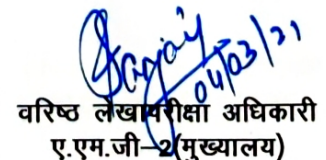 Sanjay
04/03/21
वरिष्ठ लेखापरीक्षा अधिकारी
ए.एम.जी-2(मुख्यालय)